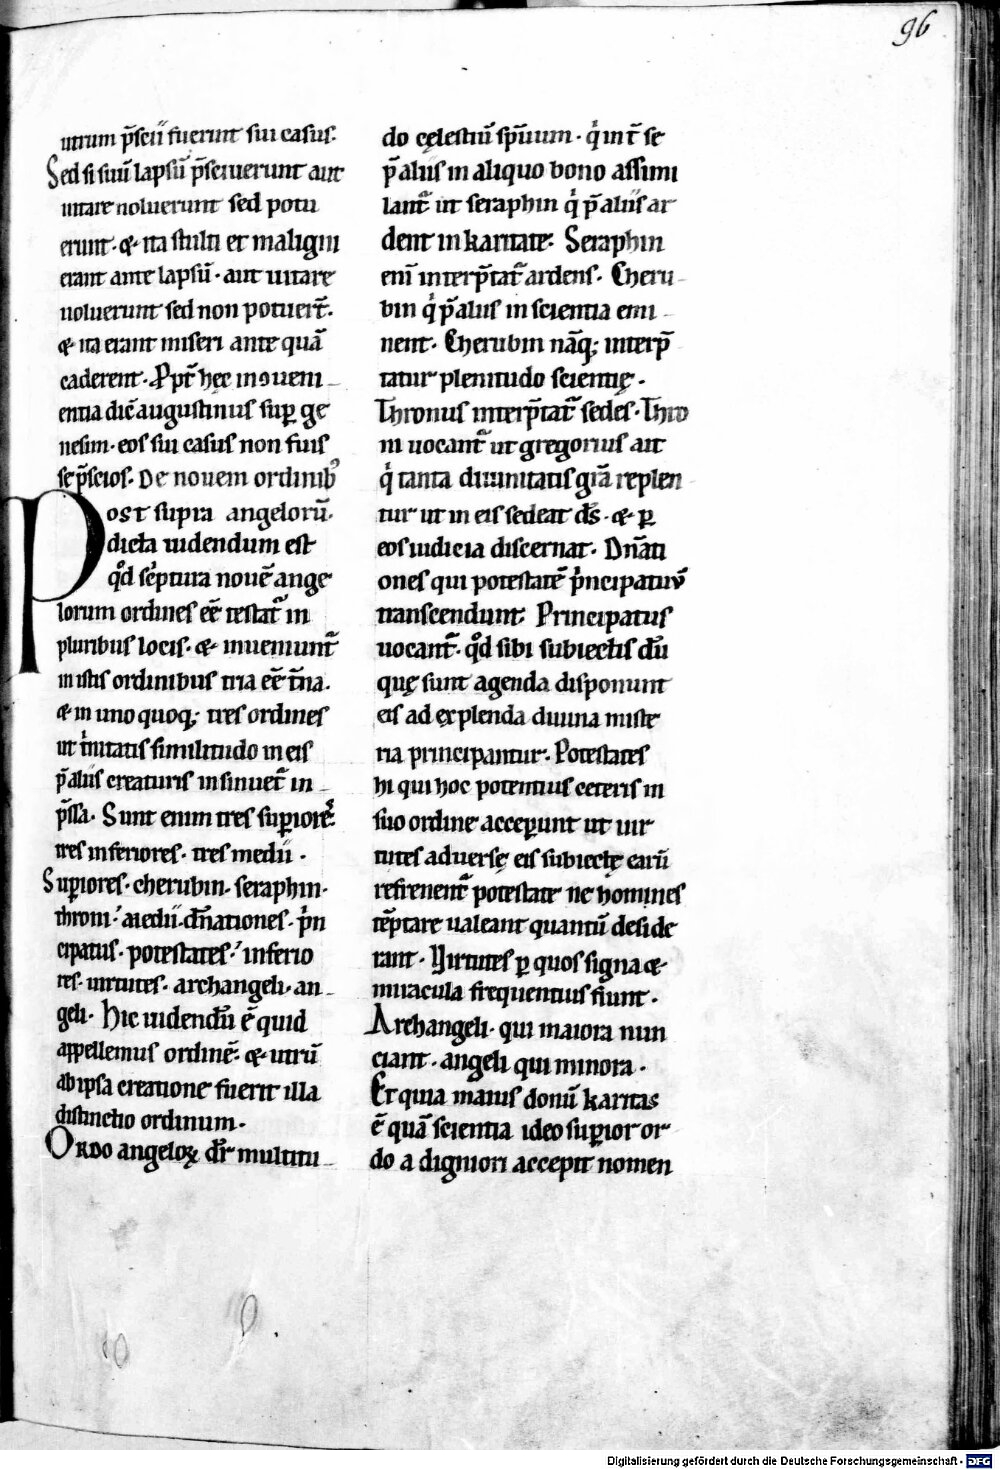 96
utrum p̄scii fuerunt sui casus.
Sed si suū lapsū p̄sciuerunt aut
uitare noluerunt sed potu
erunt. & ita stulti et maligni
erant ante lapsū. aut uitare
uoluerunt sed non potuer̄t.
& ita erant miseri ante quā
caderent. Ppt̄ hęc inoueni
entia dic̄ augustinus sup̱ ge
nesim. eos sui casus non fuis
se p̄scios. De nouem ordinib᷒
Post supra angelorū.
dicta uidendum est
qd̊ sc̄ptura nouē ange
lorum ordines eē testat᷑ in
pluribus locis. & inueniunt᷑
in istis ordinibus tria eē t̄na.
& in uno quoq; tres ordines
ut t̍nitatis similitudo in eis
p̄ aliis creaturis insinuet᷑ in
p̄ssa. Sunt enim tres sup̱iores.
tres inferiores. tres medii.
Sup̱iores. cherubin. seraphin.
throni. medii. dn̄ationes. p̍n
cipatus. potestates. inferio
res. uirtutes. archangeli. an
geli. Hic uidendū ē quid
appellemus ordinē. & utrū
ab ipsa creatione fuerit illa
distinctio ordinum.
Ordo angeloꝝ dr̄ multitu
do cęlestiū sp̄uum. q̍ int̄ se
p̄ aliis in aliquo bono assimi
lant᷑. ut seraphin q̍ p̄ aliis ar
dent in karitate. Seraphin
eni̅ interp̄tat᷑ ardens. Cheru
bin q̍ p̄ aliis in scientia emi
nent. Cherubin nāq; interp̄
tatur plenitudo scientię.
Thronus interp̄tat᷑ sedes. Thro
ni uocant᷑ ut gregorius ait
q̍ tanta diuinitatis grā replen
tur ut in eis sedeat ds̄. & ꝑ
eos iudicia discernat. Dn̄ati
ones qui potestatē p̍ncipatuū
transcendunt. Principatus
uocant᷑. qd̊ sibi subiectis dū
quę sunt agenda disponunt
eis ad explenda diuina miste
ria principantur. Potestates
hi qui hoc potentius ceteris in
suo ordine accep̱unt ut uir
tutes aduersę eis subiectę earū
refrenent᷑ potestate ne homines
tēptare ualeant quantū deside
rant. Virtutes ꝑ quos signa &
miracula frequentius fiunt.
Archangeli. qui maiora nun
ciant. angeli qui minora.
Et quia maius donū karitas
ē quā scientia ideo sup̱ior or
do a digniori accepit nomen
Digitalisierung gefördert durch die Deutsche Forschungsgemeinschaft - DFG